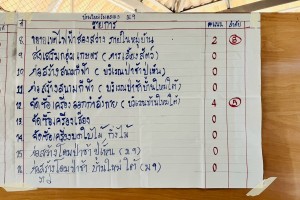 รายการ คะแนน ลำดับ
8. ขยายเขตไฟฟ้าส่องสว่าง ภายในหมู่บ้าน 2 5
9 ส่งเสริมกลุ่มเกษตร (การเลี้ยงสัตว์) 0
10 ก่อสร้างสนามกีฬา (บริเวณป่าช้าปู่เห็น) 0
11 ก่อสร้างสนามกีฬา (บริเวณป่าช้าบ้านใหม่ใต้) 0
12 จัดซื้อเครื่องออกกำลังกาย (บริเวณป่าช้าบ้านใหม่ใต้) 4
13 จัดซื้อเครื่องเสียง 0
14 จัดซื้อเครื่องบดใบไม้ กิ่งไม้ 0
15 ก่อสร้างโดมป่าช้าปู่เห็น (ม.9) 0
ก่อสร้างโดมป่าช้า บ้านใหม่ใต้ (ม.9) 0